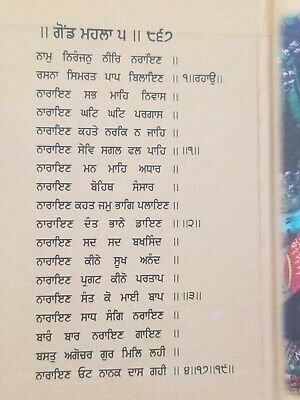 ॥ ਗੋਂਡ ਮਹਲਾ ੫ ॥ ੮੬੭
ਨਾਮੁ ਨਿਰੰਜਨੁ ਨੀਰਿ ਨਰਾਇਣ ॥
ਰਸਨਾ ਸਿਮਰਤ ਪਾਪ ਬਿਲਾਇਣ ॥ ੧॥ਰਹਾਉ॥
ਨਾਰਾਇਣ ਸਭ ਮਾਹਿ ਨਿਵਾਸ ॥
ਨਾਰਾਇਣ ਘਟਿ ਘਟਿ ਪਰਗਾਸ ॥
ਨਾਰਾਇਣ ਕਹਤੇ ਨਰਕਿ ਨ ਜਾਹਿ ॥
ਨਾਰਾਇਣ ਸੇਵਿ ਸਗਲ ਫਲ ਪਾਹਿ ॥੧॥
ਨਾਰਾਇਣ ਮਨ ਮਾਹਿ ਅਧਾਰ ॥
ਨਾਰਾਇਣ ਬੋਹਿਥ ਸੰਸਾਰ ॥
ਨਾਰਾਇਣ ਕਹਤ ਜਮੁ ਭਾਗਿ ਪਲਾਇਣ ॥
ਨਾਰਾਇਣ ਦੰਤ ਭਾਨੇ ਡਾਇਣ ॥੨॥
ਨਾਰਾਇਣ ਸਦ ਸਦ ਬਖਸਿੰਦ ॥
ਨਾਰਾਇਣ ਕੀਨੇ ਸੂਖ ਅਨੰਦ ॥
ਨਾਰਾਇਣ ਪ੍ਰਗਟ ਕੀਨੇ ਪਰਤਾਪ ॥
ਨਾਰਾਇਣ ਸੰਤ ਕੋ ਮਾਈ ਬਾਪ ॥੩॥
ਨਾਰਾਇਣ ਸਾਧ ਸੰਗਿ ਨਰਾਇਣ ॥
ਬਾਰੰ ਬਾਰ ਨਰਾਇਣ ਗਾਇਣ ॥
ਬਸਤੁ ਅਗੋਚਰ ਗੁਰ ਮਿਲਿ ਲਹੀ ॥
ਨਾਰਾਇਣ ਓਟ ਨਾਨਕ ਦਾਸ ਗਹੀ ॥ ੪॥੧੭॥੧੯॥